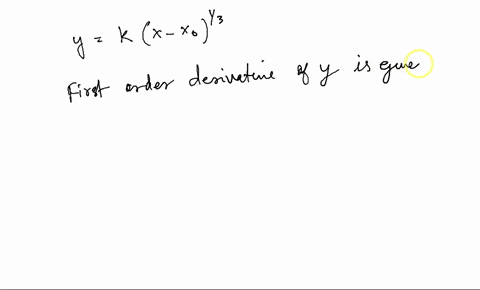 y = k (x - x₀)^{1/3}
First order derivative of y is give